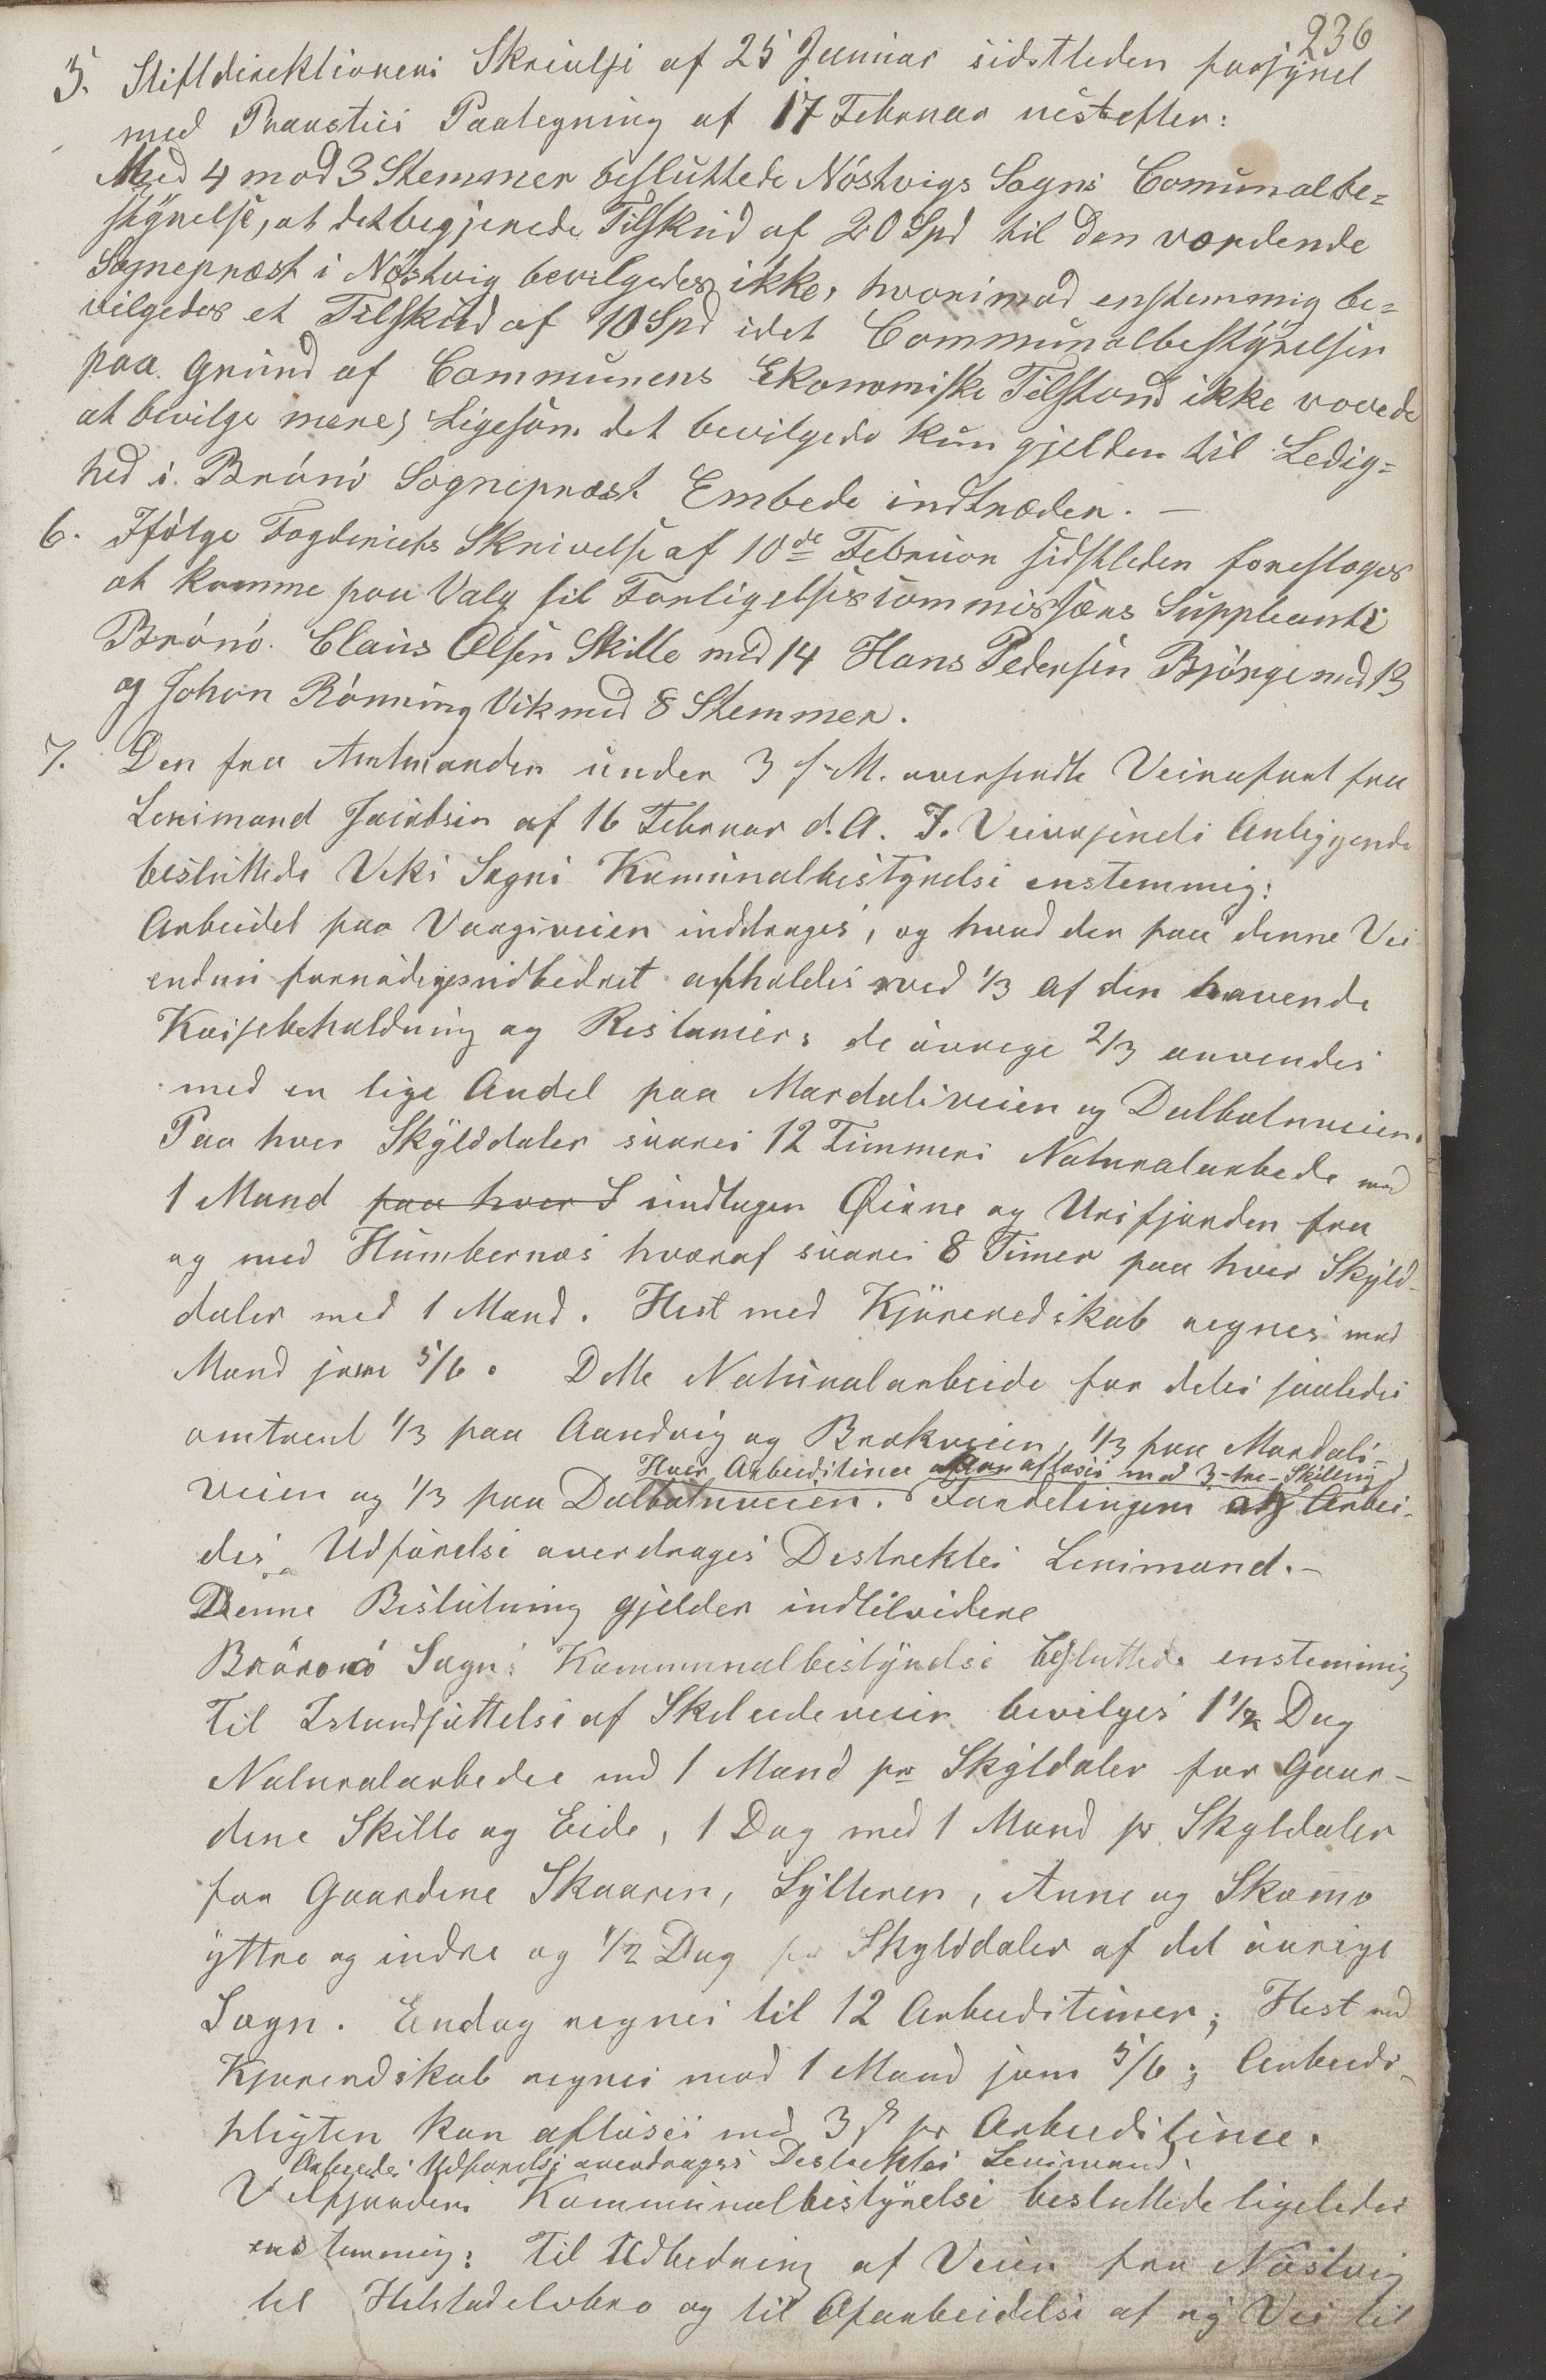 236
5. Stiftdirektionens Skrivelse af 25 Januar sidstleden forsynet
med Provstiets Paategning af 17 Februar nestefter:
Med 4 mod 3 Stemmer besluttede Nöstvigs Sogns Comunalbe=
styrelse, at det begjerede Tilskud af 20 Spd til den vordende
Sognepræst i Nöstvig bevilgedes ikke, hvorimod enstemmig be=
vilgedes et Tilskud af 10 Spd idet Communalbestyrelsen
paa Grund af Communens Ekonomiske Tilstand ikke vovede
at bevilge mere, Ligesom det bevilgede kun gjelder til Ledig=
hed i Brönö Sognepræst Embede indtræder. —
6. Ifölge Fogderiets Skrivelse af 10de Februar sidstleden foreslages
at komme paa Valg til Forligelsescommissærs Suppleant i
Brönö. Claus Olsen Skille med 14 Hans Pedersen Bjørge med 13
og Johan Rönning Vik med 8 Stemmer.
7. Den fra Amtmanden under 3 f. M. oversendte Veirapport fra
Lensmand Jacobsen af 16 Februar d. A. I. Veivæsenets Anliggende
besluttede Viks Sogns Komunalbestyrelse enstemmig:
Arbeidet paa Vaagsveien inddrages, og hvad der paa denne Vei
endnu fornödiges udbedret afholdes med 1/3 af den havende
Kassebeholdning og Restancer; de övrege 2/3 anvendes
med en lige Andel paa Mardalsveien og Dalbotnveien.
Paa hver Skylddaler svares 12 Timmers Naturalarbede med
1 Mand paa hver S undtagen Öerne og Ursfjorden fra
og med Humbernæs hvoraf svares 8 Timer paa hver Skyld-
daler med 1 Mand. Hest med Kjöreredskab regnes mod
Mand som 5/6. Dette Naturalarbeide fordeles saaledes
omtrent 1/3 paa Aandvig og Brækveien, 1/3 paa Mardals-
Hver Arbeidstime aflöses med 3-tre-Skilling
veien og 1/3 paa Dalbotnveien. Fordelingen og Arbei-
dets Udförelse overdrages Destriktets Lensmand.-
Denne Beslutning gjelder indtilvidere
Brönö Sogns Kommunalbestyrelse besluttede enstemmig
Til Istandsættelse af Skeleedeveien bevilges 1 1/2 Dag
Naturalarbeder med 1 Mand pr Skyldaler for Gaar-
dene Skille og Eide, 1 Dag med 1 Mand pr Skyldaler
for Gaardene Skaaren, Sylteren, Aune og Skomo
yttre og indre og 1/2 Dag pr Skylddaler af det övrige
Sogn. En dag regnes til 12 Arbeidstimer; Hest med
Kjöreredskab regnes mod 1 Mand som 5/6; Arbeids-
pligten kan aflöses med 3 s pr Arbeidstime.
Arbeidets Udförelse overdrages Destriktets Lensmand.
Velfjordens Kommunalbestyrelse besluttede ligeledes
enstemmig: Til Udbedring af Veien fra Nöstvig
til Helstadelvbro og til Oparbeidelse af ny Vei til